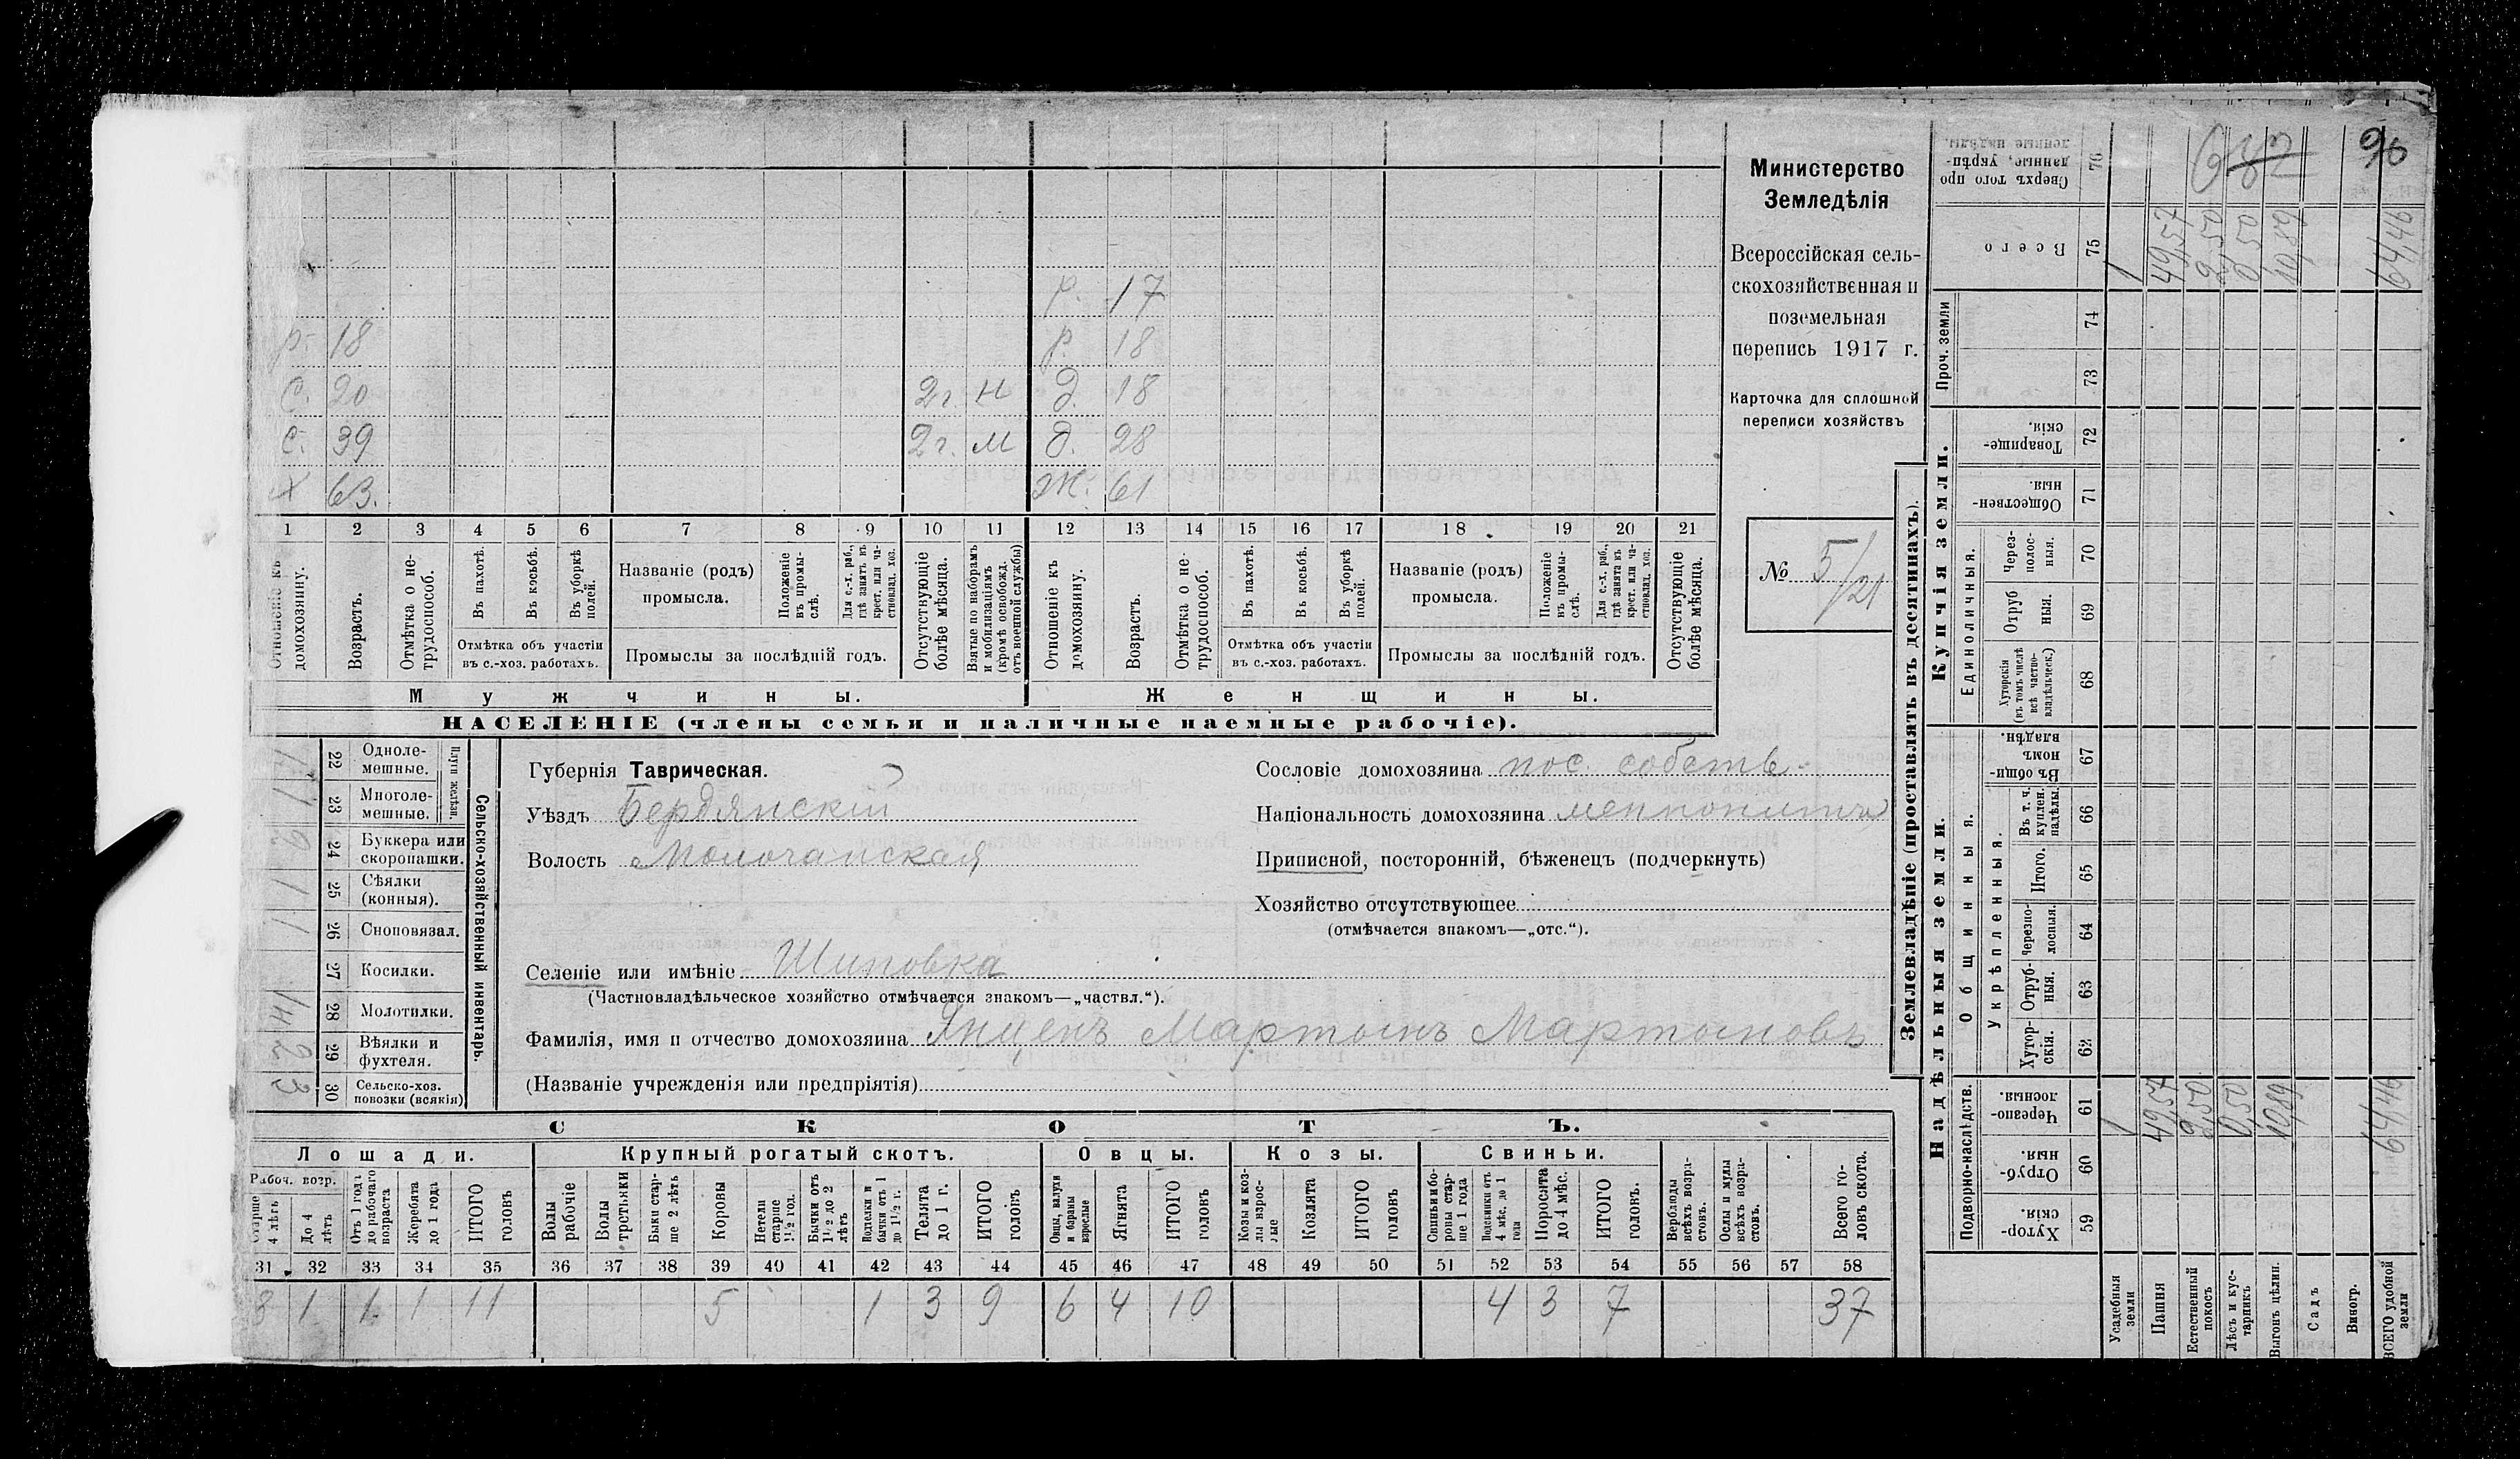 96
687
Министерство
Земледѣлія
Всероссійская сель-
скохозяйственная и
поземельная
перепись 1917 г.
Карточка для сплошной
переписи хозяйствъ
№ 5/21
р. 17
р. 18 р. 18
с. 20 2г. н д. 18
с. 39 2г. м д. 28
х 63. ж. 61
1 2 3 4 5 6 7 8 9 10 11 12 13 14 15 16 17 18 19 20 21
Отношеніе къ домохозяину.
Возрастъ.
Отмѣтка о не-трудоспособ.
Въ пахотѣ.
Въ косьбѣ.
Въ уборкѣ полей.
Отмѣтка объ участіи
въ с.-хоз. работахъ.
Названіе (родъ)
промысла.
Положеніе въ промы-слѣ.
Для с.-х. раб., гдѣ занятъ въ крест. или ча-стновлад. хоз.
Промыслы за послѣдній годъ.
Отсутствующіе болѣе мѣсяца.
Взятые по наборамъ и мобилизаціямъ (кромѣ освобожд. отъ военной службы)
Отношеніе къ домохозяину.
Возрастъ.
Отмѣтка о не-трудоспособ.
Въ пахотѣ.
Въ косьбѣ.
Въ уборкѣ полей.
Отмѣтка объ участіи
въ с.-хоз. работахъ.
Названіе (родъ)
промысла.
Положеніе въ промы-слѣ.
Для с.-х. раб., гдѣ занята въ крест. или ча-стновлад. хоз.
Промыслы за послѣдній годъ.
Отсутствующіе болѣе мѣсяца.
Мужчины. Женщины.
НАСЕЛЕНІЕ (члены семьи и наличные наемные рабочіе).
Сельско-хозяйственный инвентарь.
Плуги желѣзн.
22 Одноле-мешные. 1
23 Многоле-мешные. 1
24 Буккера или скоропашки. 2
25 Сѣялки (конныя). 1
26 Сноповязал. 1
27 Косилки.
28 Молотилки.
29 Вѣялки и фухтеля. 2
30 Сельско-хоз. повозки (всякія) 3
Губернія Таврическая.
Уѣздъ Бердянскій
Волость Молочанская
Селеніе или имѣніе Шиповка
(Частновладѣльческое хозяйство отмѣчается знакомъ—„частвл.“).
Фамилія, имя и отчество домохозяина Янценъ Мартынъ Мартыновъ
(Названіе учрежденія или предпріятія)
Сословіе домохозяина пос. собств.
Національность домохозяина меннонитъ
Приписной, посторонній, бѣженецъ (подчеркнуть)
Хозяйство отсутствующее
(отмѣчается знакомъ—„отс.“).
СКОТЪ.
Лошади. Крупный рогатый скотъ. Овцы. Козы. Свиньи.
Рабоч. возр.
Старше 4 лѣтъ
До 4 лѣтъ
Отъ 1 года до рабочаго возраста
Жеребята до 1 года
ИТОГО головъ
Волы рабочіе
Волы гртстьянки
Быки стар-ше 2 лѣтъ
Коровы
Нетели старше 1½ год.
Бычки отъ 1½ до 2 лѣтъ
Подтелки и бычки отъ 1 до 1½ г.
Телята до 1 г.
ИТОГО головъ
Овцы, валухи и бараны взрослые
Ягнята
ИТОГО головъ
Козы и коз-лы взрос-лые
Козлята
ИТОГО головъ
Свиньи и бо-ровы стар-ше 1 года
Подсвинки отъ 4 мѣс. до 1 года
Поросята до 4 мѣс.
ИТОГО головъ.
Верблюды всѣхъ возра-стовъ.
Ослы и мулы всѣхъ возра-стовъ.
Всего го-ловъ скота.
31 32 33 34 35 36 37 38 39 40 41 42 43 44 45 46 47 48 49 50 51 52 53 54 55 56 57 58
8 1 1 1 11 5 1 3 9 6 4 10 4 3 7 37
Землевладѣніе (проставлять въ десятинахъ).
Надѣльныя земли. Купчія земли. Проч. земли
Подворно-наслѣдств.
Общинныя.
Укрѣпленныя.
Единоличныя.
Хутор-скія. 59
Отруб-ныя. 60
Черезпо-лосныя. 61
Хутор-скія. 62
Отруб-ныя. 63
Черезпо-лосныя. 64
Итого. 65
Въ т. ч. куплен. надѣлы. 66
Въ общин-номъ владѣн. 67
Хуторскія (въ томъ числѣ всѣ частно-владѣльческ.) 68
Отруб ныя. 69
Через-полос-ныя. 70
Обществен-ныя. 71
Товарище-скія. 72
73
74
Всего 75
Сверхъ того про данные, укрѣп-ленные надѣлы. 76
Усадебныя земли 1 1
Пашня 49,57 49,57
Естественный покосъ 2,50 2,50
Лѣсъ и кус-тарникъ 0,50 0,50
Выгонъ цѣлин. 10,89 10,89
Садъ
Виногр.
ВСЕГО удобной земли 64,46 64,46